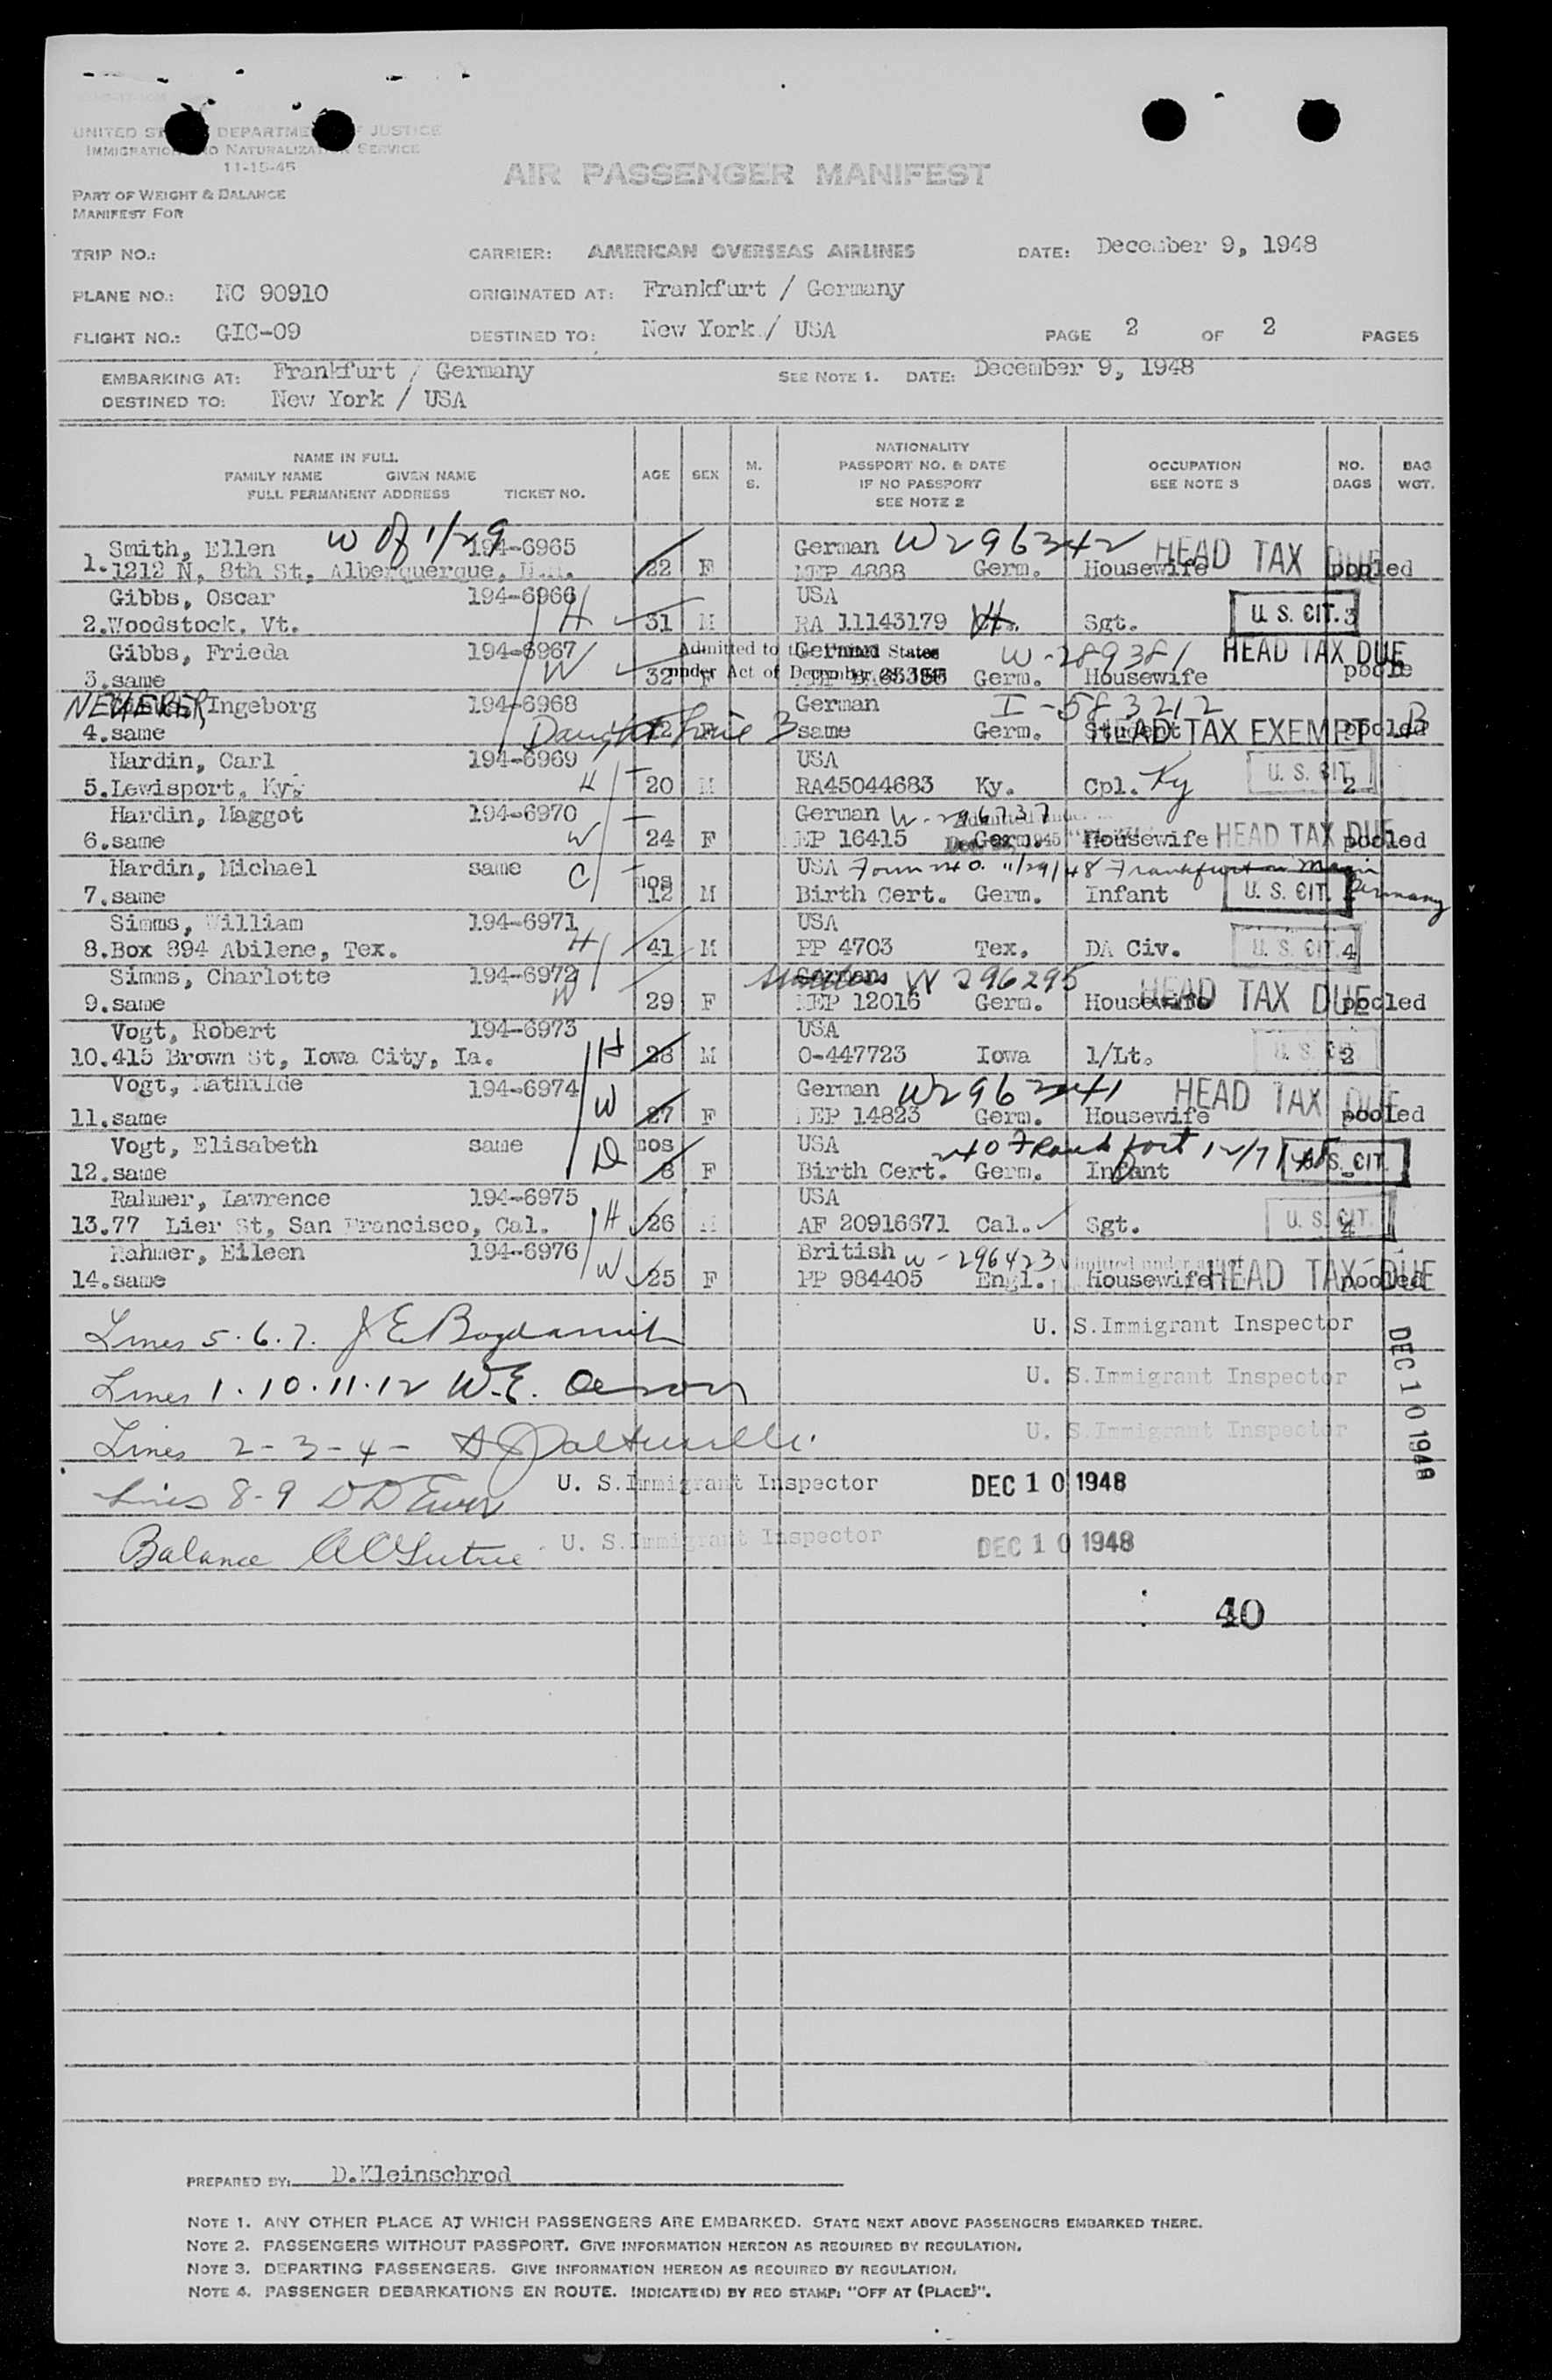 UNITED ST DEPARTME F JUSTICE
IMMIGRATIO ND NATURALIZAT N SERVICE
11-15-45
AIR PASSENGER MANIFEST
PART OF WEIGHT & BALANCE
MANIFEST FOR
TRIP NO.: CARRIER: AMERICAN OVERSEAS AIRLINES DATE: December 9, 1948
PLANE NO.: NC 90910 ORIGINATED AT: Frankfurt / Germany
FLIGHT NO.: GIC-09 DESTINED TO: New York / USA PAGE 2 OF 2 PAGES
EMBARKING AT: Frankfurt / Germany SEE NOTE 1. DATE: December 9, 1948
DESTINED TO: New York / USA
NAME IN FULL
FAMILY NAME GIVEN NAME
FULL PERMANENT ADDRESS TICKET NO. AGE SEX M. S. NATIONALITY PASSPORT NO. & DATE IF NO PASSPORT SEE NOTE 2 OCCUPATION SEE NOTE 3 NO. BAGS BAG WGT.
Smith, Ellen W of 1/29 194-6965 German W296342 HEAD TAX DUE
1. 1212 N, 8th St, Alberquerque, N.M. 22 F MEP 4888 Germ. Housewife pooled
Gibbs, Oscar 194-6966 USA
2. Woodstock, Vt. H 31 M RA 11143179 Vt. Sgt. U. S. CIT. 3
Gibbs, Frieda 194-6967 Admitted to the United States German W-289381 HEAD TAX DUE
3. same W 32 F under Act of December 28, 1945 Germ. Housewife poole
NEMERER, Ingeborg 194-6968 German I-583212
4. same Daught 12 F same Germ. Student HEAD TAX EXEMPT pooled
Hardin, Carl 194-6969 USA
5. Lewisport, Ky. H 20 M RA45044683 Ky. Cpl. Ky U. S. CIT 2
Hardin, Maggot 194-6970 German W-296737
6. same W 24 F MEP 16415 Germ. Housewife HEAD TAX DUE pooled
Hardin, Michael same C mos USA Form 240 11/29/48 Frankfurt on Main
7. same 12 M Birth Cert. Germ. Infant U. S. CIT. Germany
Simms, William 194-6971 USA
8. Box 894 Abilene, Tex. H 41 M PP 4703 Tex. DA Civ. U. S. CIT. 4
Simms, Charlotte 194-6972 German W 296295
9. same W 29 F MEP 12016 Germ. Housewife HEAD TAX DUE pooled
Vogt, Robert 194-6973 USA
10. 415 Brown St, Iowa City, Ia. H 28 M O-447723 Iowa 1/Lt. U. S. CIT 2
Vogt, Mathilde 194-6974 German HEAD TAX DUE
11. same W 27 F MEP 14823 Germ. Housewife pooled
Vogt, Elisabeth same mos USA 240 Frankfort 12/7/48
12. same D 8 F Birth Cert. Germ. Infant U. S. CIT.
Rahmer, Lawrence 194-6975 USA
13. 77 Lier St, San Francisco, Cal. H 26 M AF 20916671 Cal. Sgt. U. S. CIT. 4
Rahmer, Eileen 194-6976 British W-296423
14. same W 25 F PP 984405 Engl. Housewife HEAD TAX DUE pooled
Lines 5. 6. 7. U. S. Immigrant Inspector
Lines 1. 10. 11. 12 W. E. U. S. Immigrant Inspector
Lines 2-3-4- U. S. Immigrant Inspector
DEC 10 1948
Lines 8-9 U. S. Immigrant Inspector DEC 10 1948
Balance U. S. Immigrant Inspector DEC 10 1948
40
PREPARED BY: D.Kleinschrod
NOTE 1. ANY OTHER PLACE AT WHICH PASSENGERS ARE EMBARKED. STATE NEXT ABOVE PASSENGERS EMBARKED THERE.
NOTE 2. PASSENGERS WITHOUT PASSPORT. GIVE INFORMATION HEREON AS REQUIRED BY REGULATION.
NOTE 3. DEPARTING PASSENGERS. GIVE INFORMATION HEREON AS REQUIRED BY REGULATION.
NOTE 4. PASSENGER DEBARKATIONS EN ROUTE. INDICATE(D) BY RED STAMP: "OFF AT (PLACE)".